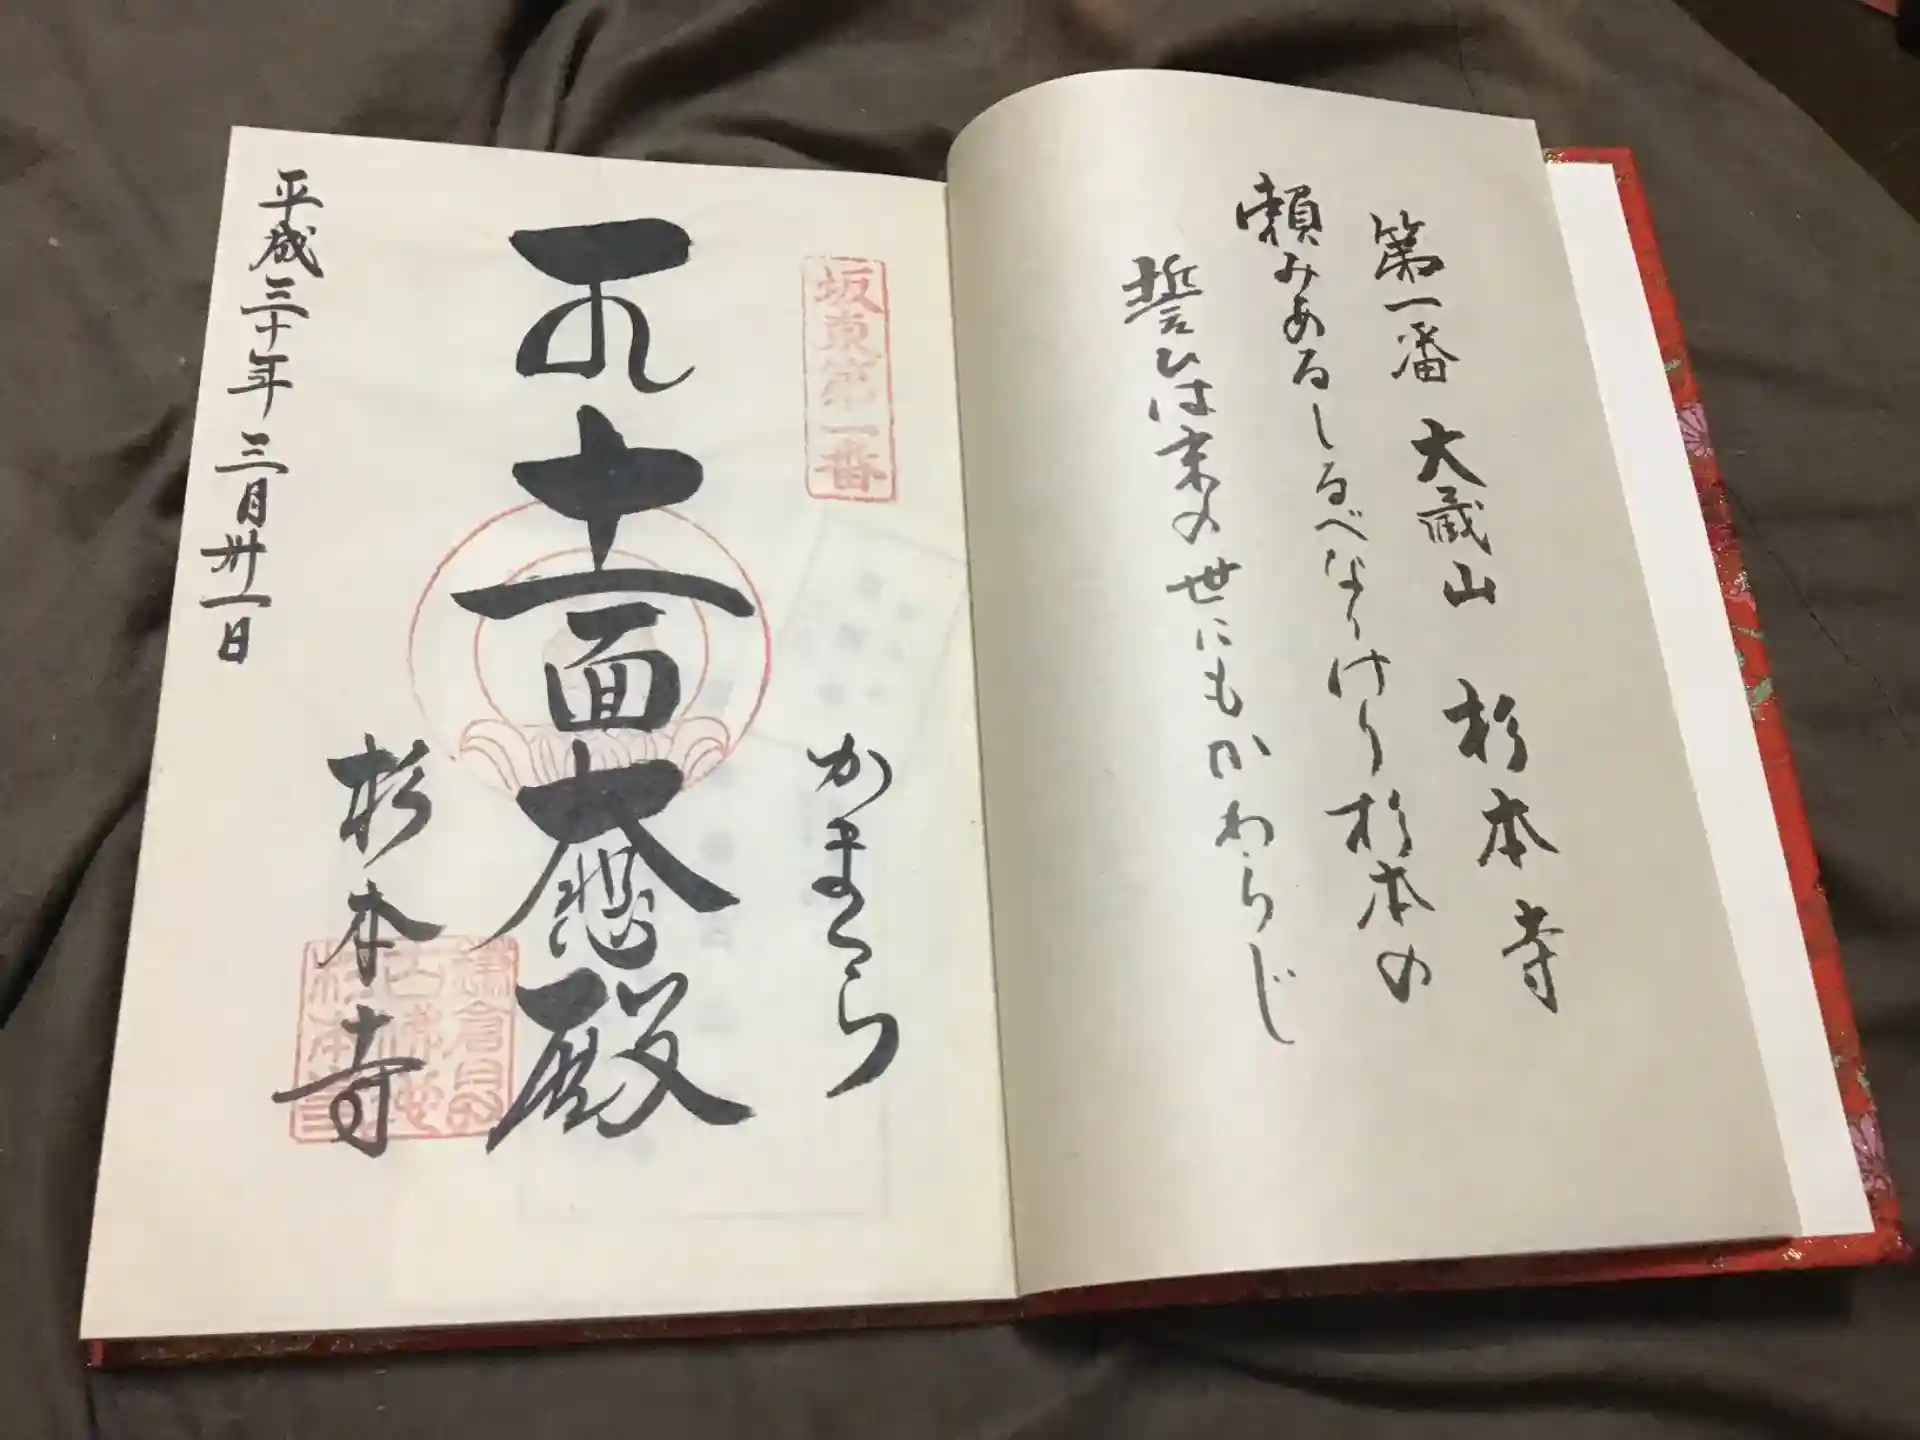 第一番 大蔵山 杉本寺
頼みあるしるべなりけり杉本の
誓ひは末の世にもかわらじ
坂東第一番
かまくら
十一面大悲殿
杉本寺
鎌倉最
古佛地
杉本寺
平成三十年三月卅一日